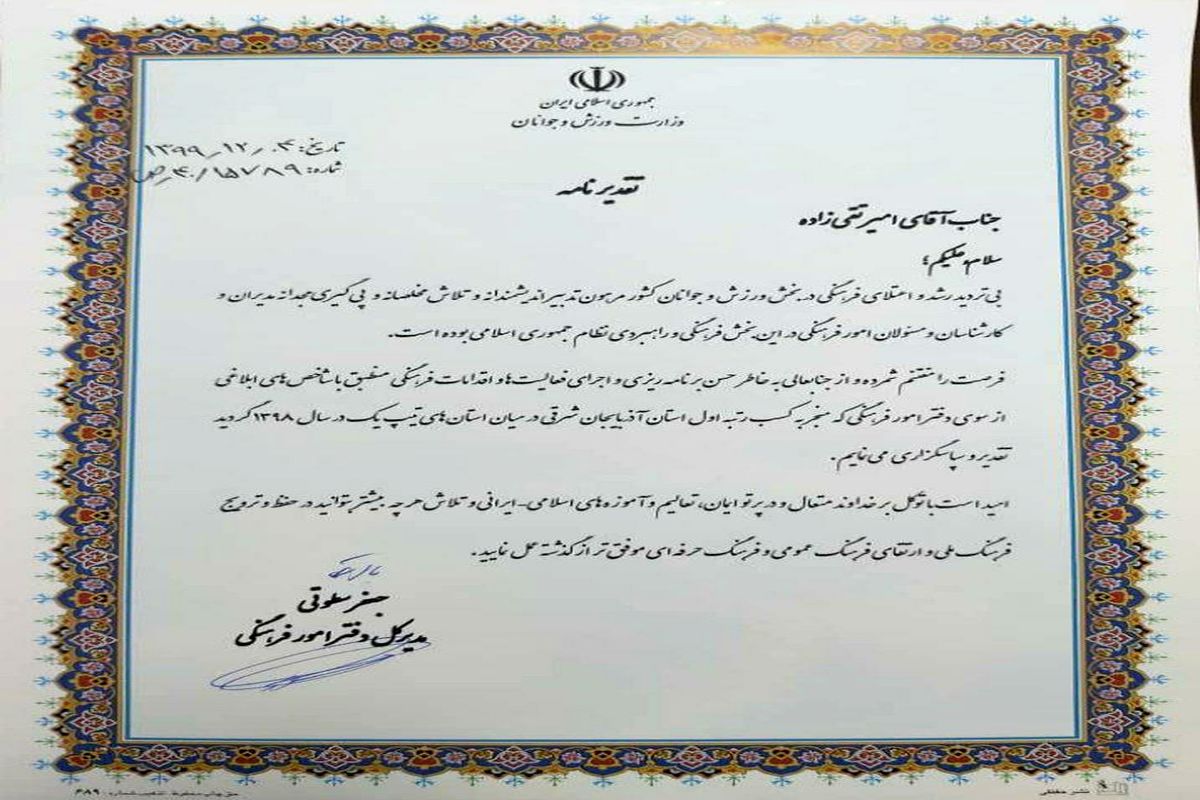 جمهوری اسلامی ایران
وزارت ورزش و جوانان
تاریخ: ۱۳۹۹_۱۲_۰۴
شماره: ۴۰/۱۵۷۸۹_ص
تقدیر نامه
جناب آقای امیر تقی زاده
سلام علیکم؛
بی تردید رشد و اعتلای فرهنگی در بخش ورزش و جوانان کشور مرهون تدبیر اندیشمندانه و تلاش مخلصانه و پی گیری مجدانه مدیران و
کارشناسان و مسئولان امور فرهنگی در این بخش فرهنگی و راهبردی نظام جمهوری اسلامی بوده است.
فرصت را مغتنم شمرده و از جنابعالی به خاطر حسن برنامه ریزی و اجرای فعالیت ها و اقدامات فرهنگی منطبق با شاخص های ابلاغی
از سوی دفتر امور فرهنگی که منجر به کسب رتبه اول استان آذربایجان شرقی در میان استان های تیپ یک در سال ۱۳۹۸ گردید
تقدیر و سپاسگزاری می نمایم.
امید است با توکل بر خداوند متعال و در پرتو ایمان، تعالیم و آموزه های اسلامی-ایرانی و تلاش هر چه بیشتر بتوانید در حفظ و ترویج
فرهنگ ملی و ارتقای فرهنگ عمومی و فرهنگ حرفه ای موفق تر از گذشته عمل نمایید.
جعفر سلوقی
مدیرکل دفتر امور فرهنگی
نشر حقیقی
حق چاپ محفوظ - شماره: ۴۸۹